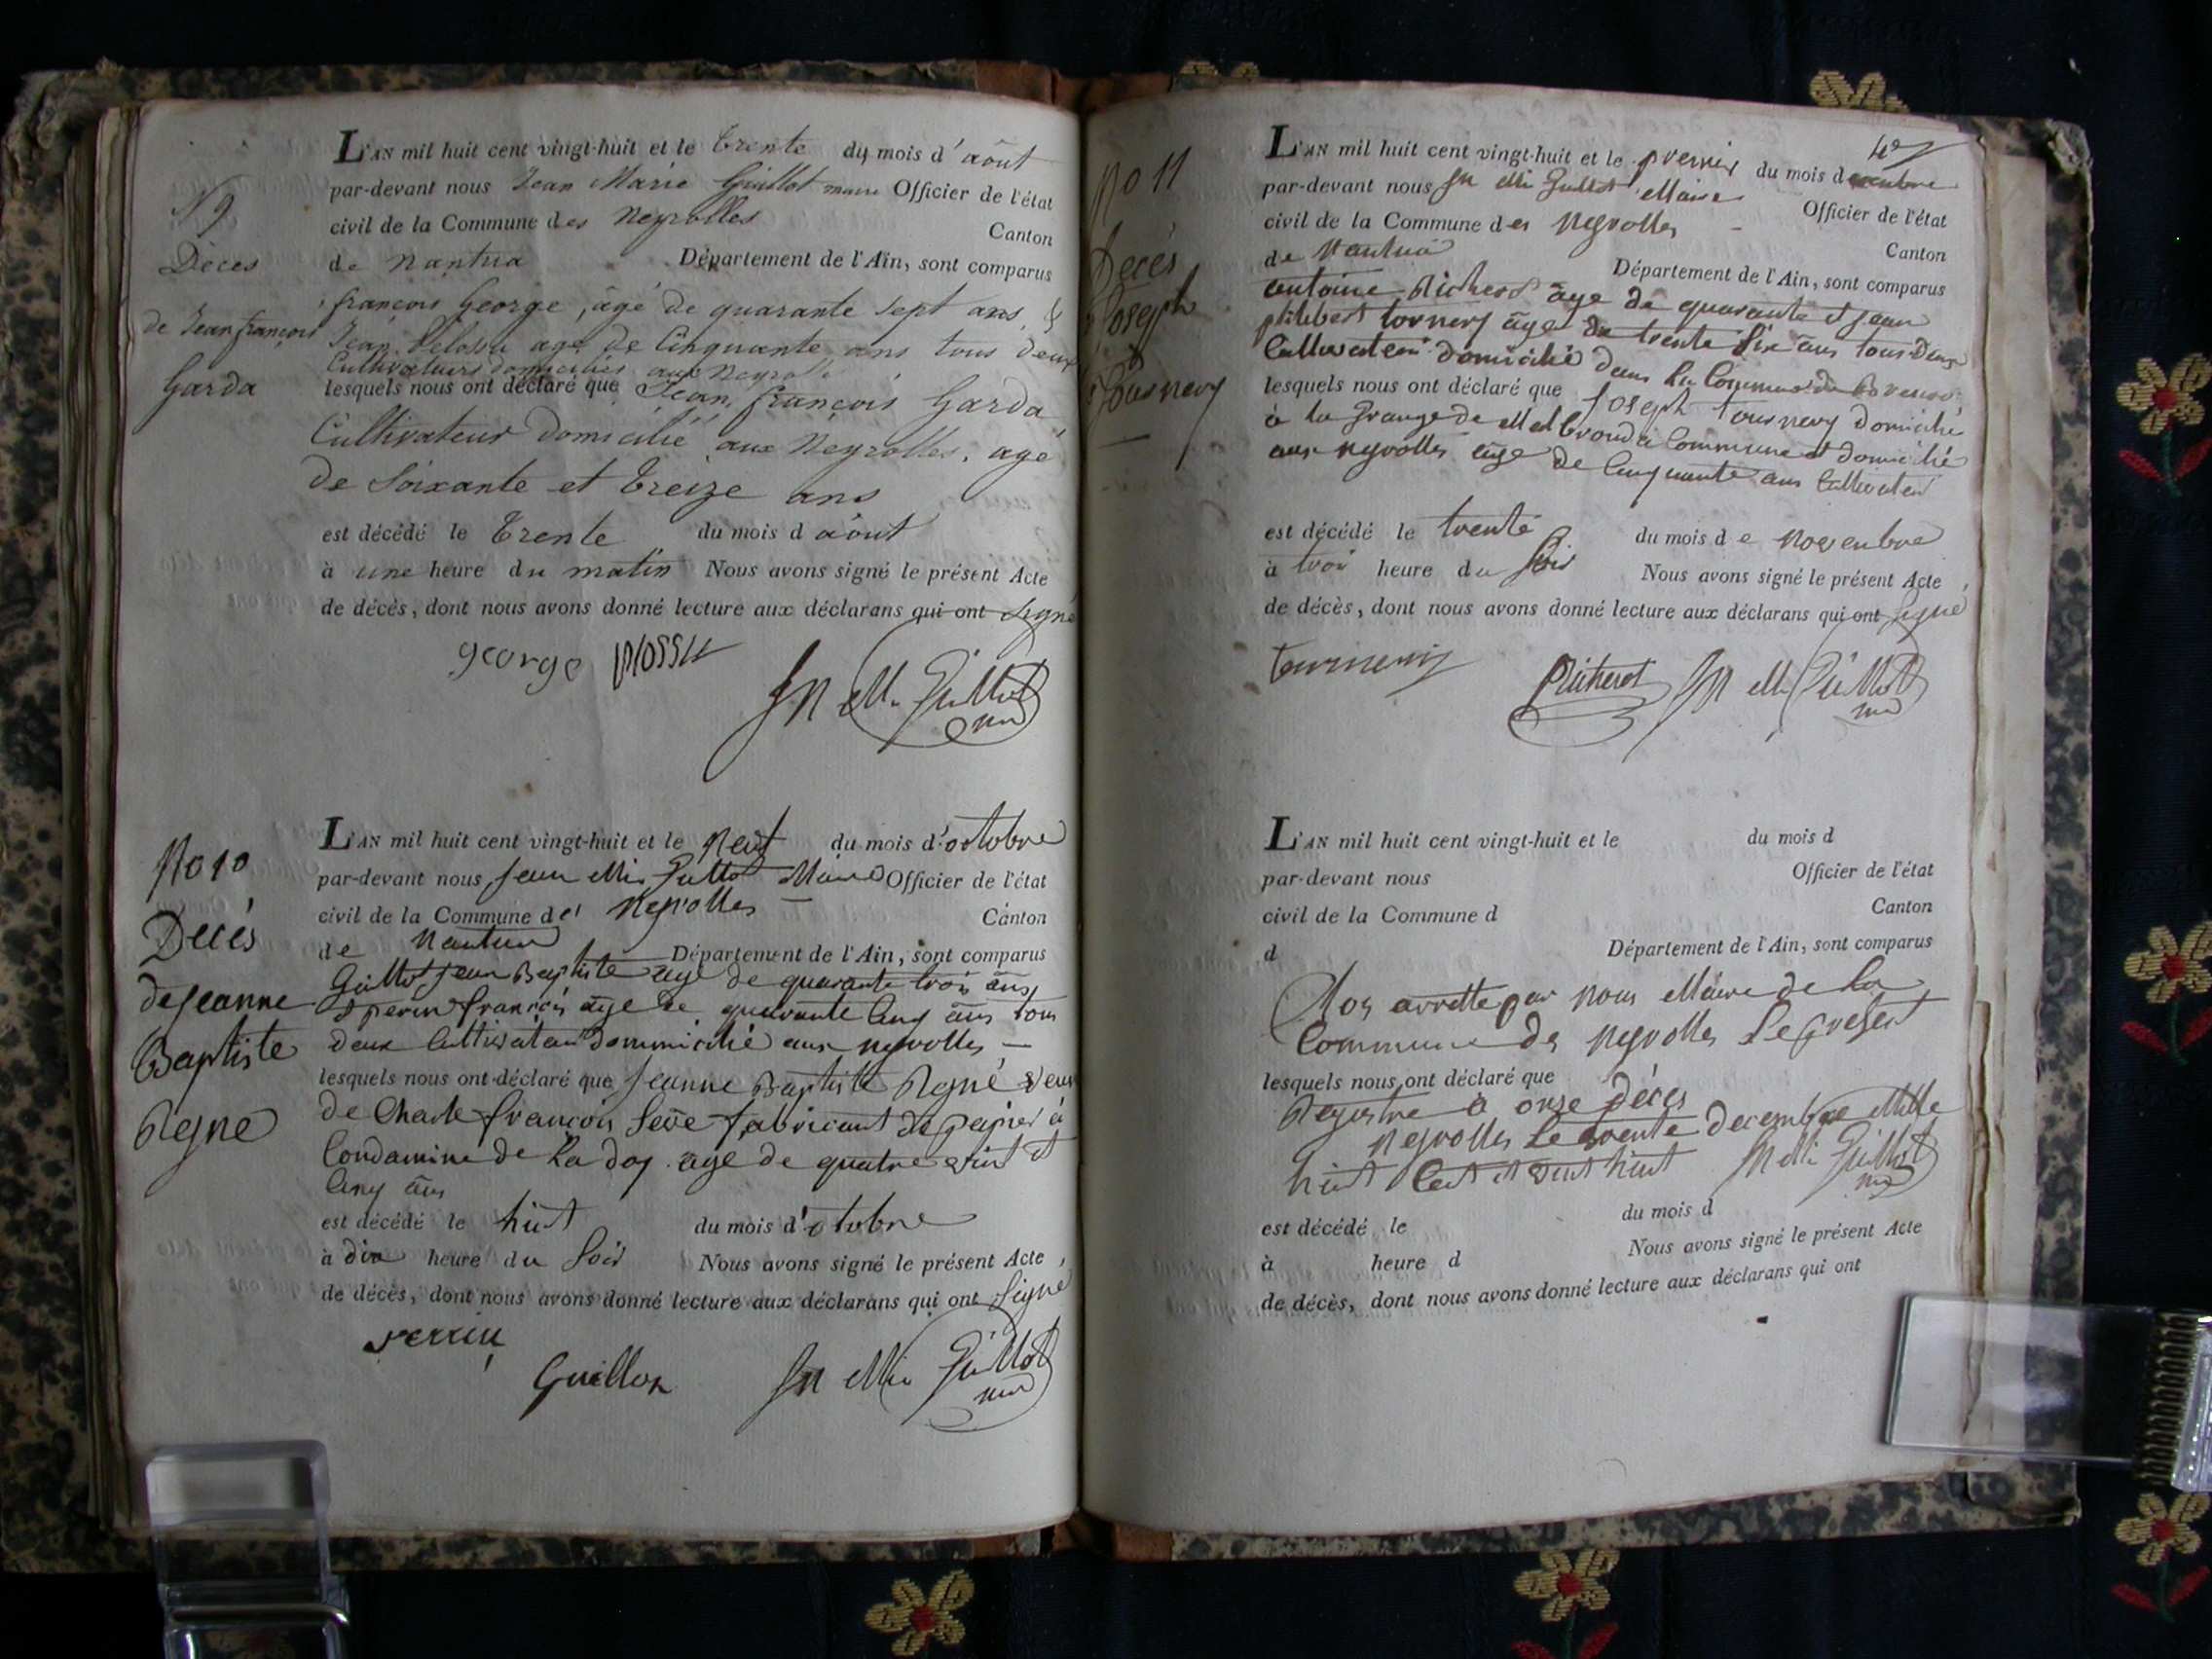 N 9
Déces
de Jean françois
Garda
L'AN mil huit cent vingt-huit et le trente du mois d'août
par-devant nous Jean Marie Guillot maire Officier de l'état
civil de la Commune des Neyrolles Canton
de Nantua Département de l'Ain, sont comparus
françois George, âgé de quarante sept ans, &
Jean agé de Cinquante ans tous deux
Cultivateurs domiciliés aux Neyrolles
lesquels nous ont déclaré que Jean françois Garda
Cultivateur Domicilié aux Neyrolles, agé
de Soixante et treize ans
est décédé le trente du mois d août
à une heure du matin Nous avons signé le présent Acte
de décès, dont nous avons donné lecture aux déclarans qui ont Signé
george
Jn Mie Guillot
No 10
Décés
de jeanne
Baptiste
Regne
L'AN mil huit cent vingt-huit et le neuf du mois d'octobre
par-devant nous jean Mie Guillot Maire Officier de l'état
civil de la Commune des Neyrolles Canton
de Nantua Département de l'Ain, sont comparus
Guillot jean Baptiste age de quarante trois ans
& perin françois age de quarante cinq ans tous
deux Cultivateur Dommicilié aux neyrolles
lesquels nous ont déclaré que jeanne Baptiste Regné veuve
de Charle françois Seve fabricant de papier à
Condamine de la doy age de quatre vint et
cinq ans
est décédé le huit du mois d'otobre
à dix heure du Soir Nous avons signé le présent Acte,
de décés, dont nous avons donné lecture aux déclarans qui ont Signé
Perrin
Guillot
Jn Mie Guillot
42
No 11
Decés
Joseph
Tournery
L'AN mil huit cent vingt-huit et le premier du mois decembre
par-devant nous Jn Mie Guillot Maire Officier de l'état
civil de la Commune des Neyrolles Canton
de Nantua Département de l'Ain, sont comparus
antoine Picherot âge de quarante et jean
philibert tornery âge de trente Six ans tous deux
Cultivateur domicilié dans la Commune de
lesquels nous ont déclaré que Joseph tournery domicilié
à la grange de commune et domicilié
aux neyrolles âge de cinquante ans Cultivateur
est décédé le trente du mois d e novenbre
à troi heure du Soir Nous avons signé le présent Acte,
de décès, dont nous avons donné lecture aux déclarans qui ont signé
tournery
Picherot Jn Mie Guillot
L'AN mil huit cent vingt-huit et le du mois d
par-devant nous Officier de l'état
civil de la Commune d Canton
d Département de l'Ain, sont comparus
Clos arretté par nous Maire de la
Commune des Neyrolles le present
lesquels nous ont déclaré que
Registre à onze Décés
Neyrolles le trente decembre Mille
huit Cent et vint huit Jn Mie Guillot
est décédé le du mois d
à heure d Nous avons signé le présent Acte
de décès, dont nous avons donné lecture aux déclarans qui ont